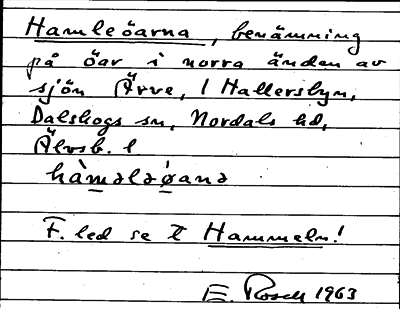 Hamleöarna, benämning
på öar i norra ändan av
sjön Ärve, l Hallersbyn,
Dalskogs sn, Nordals hd,
Älvsb. l
hàm̲ələǿ̲anə
F. led se t Hammeln!
E. Rosell 1963